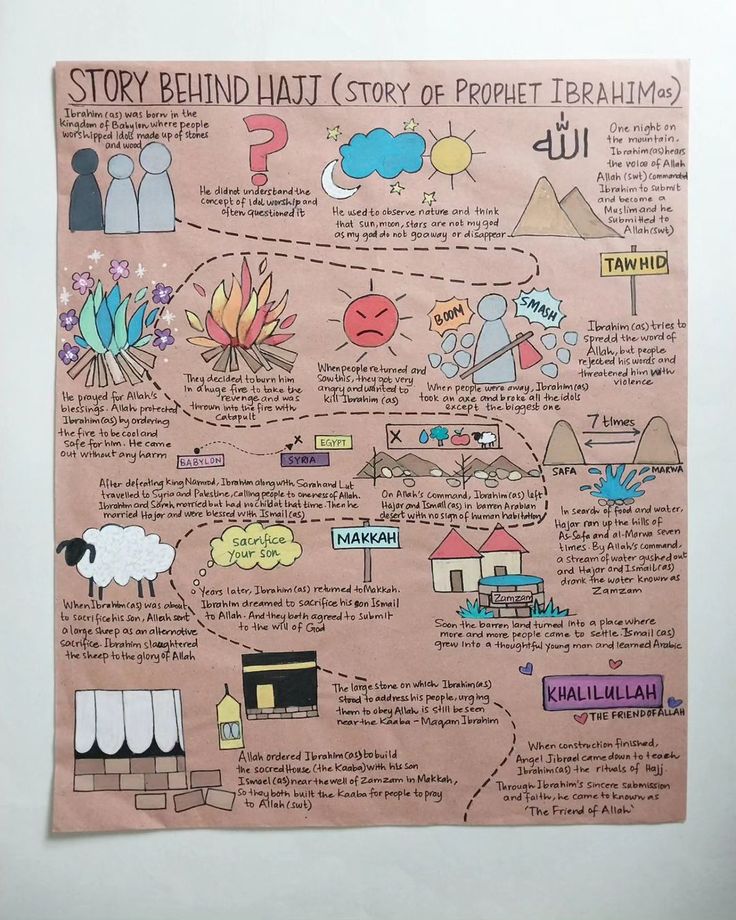 STORY BEHIND HAJJ (STORY OF PROPHET IBRAHIM as)
Ibrahim (as) was born in the
kingdom of Babylon where people
worshipped Idols made up of stones
and wood
?
He did not understand the
concept of idol worship and
often questioned it
He used to observe nature and think
that sun, moon, stars are not my god
as my god do not go away or disappear
الله
One night on
the mountain.
Ibrahim (as) hears
the voice of Allah
Allah (swt) commanded
Ibrahim to submit
and become a
Muslim and he
submitted to
Allah (swt)
TAWHID
Ibrahim (as) tries to
spread the word of
Allah, but people
rejected his words and
threatened him with
violence
BOOM
SMASH
When people were away, Ibrahim (as)
took an axe and broke all the idols
except the biggest one
When people returned and
saw this, they got very
angry and wanted to
kill Ibrahim (as)
They decided to burn him
in a huge fire to take the
revenge and was
thrown into the fire with
catapult
He prayed for Allah's
blessings. Allah protected
Ibrahim (as) by ordering
the fire to be cool and
safe for him. He came
out without any harm
BABYLON
SYRIA
EGYPT
After defeating king Namrud, Ibrahim along with Sarah and Lut
travelled to Syria and Palestine, calling people to oneness of Allah.
Ibrahim and Sarah, married but had no child at that time. Then he
married Hajar and were blessed with Ismail (as)
X
On Allah's command, Ibrahim (as) left
Hajar and Ismail (as) in barren Arabian
desert with no sign of human habitation
7 times
SAFA
MARWA
In search of food and water,
Hajar ran up the hills of
As-Safa and al-Marwa seven
times. By Allah's command,
a stream of water gushed out
and Hajar and Ismail (as)
drank the water known as
Zamzam
Zamzam
Soon the barren land turned into a place where
more and more people came to settle. Ismail (as)
grew into a thoughtful young man and learned Arabic
MAKKAH
sacrifice
your son
Years later, Ibrahim (as) returned to Makkah.
Ibrahim dreamed to sacrifice his son Ismail
to Allah. And they both agreed to submit
to the will of God
When Ibrahim (as) was about
to sacrifice his son, Allah sent
a large sheep as an alternative
sacrifice. Ibrahim slaughtered
the sheep to the glory of Allah
Allah ordered Ibrahim (as) to build
the sacred House (the Kaaba) with his son
Ismael (as) near the well of Zamzam in Makkah,
So they both built the Kaaba for people to pray
to Allah (swt)
The large stone on which Ibrahim (as)
stood to address his people, urging
them to obey Allah is still be seen
near the Kaaba - Maqam Ibrahim
KHALILULLAH
THE FRIEND OF ALLAH
When construction finished,
Angel Jibrael came down to teach
Ibrahim (as) the rituals of Hajj.
Through Ibrahim's sincere submission
and faith, he came to known as
'The Friend of Allah'